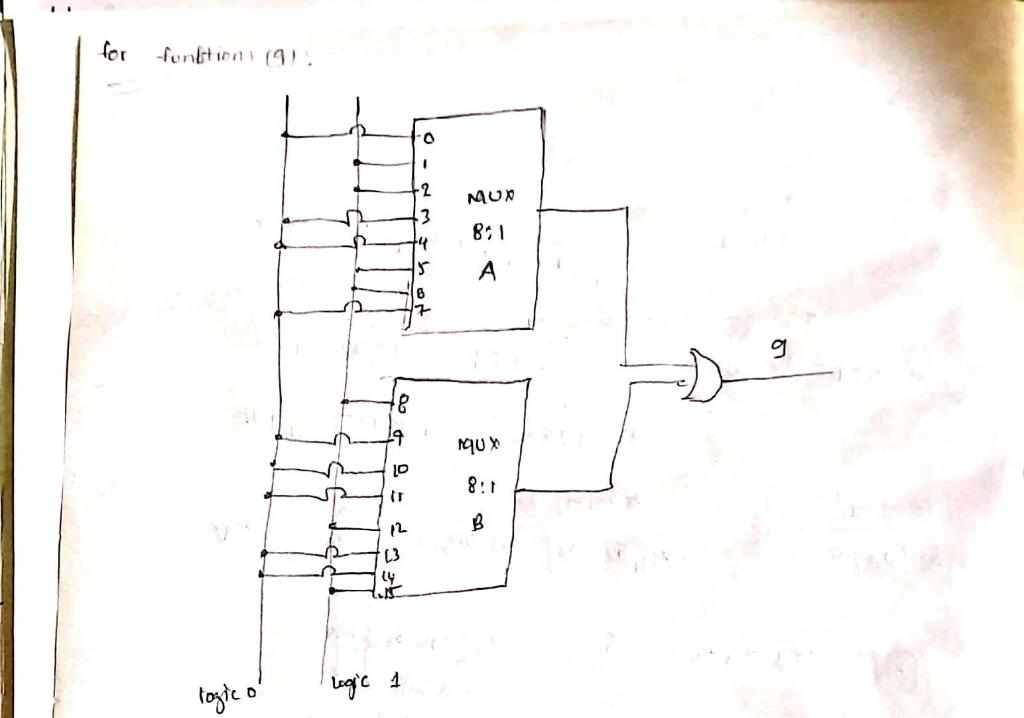 for function (g):
0
1
2
3
4
5
6
7
MUX
8:1
A
g
8
9
10
11
12
13
14
15
MUX
8:1
B
logic 0
logic 1